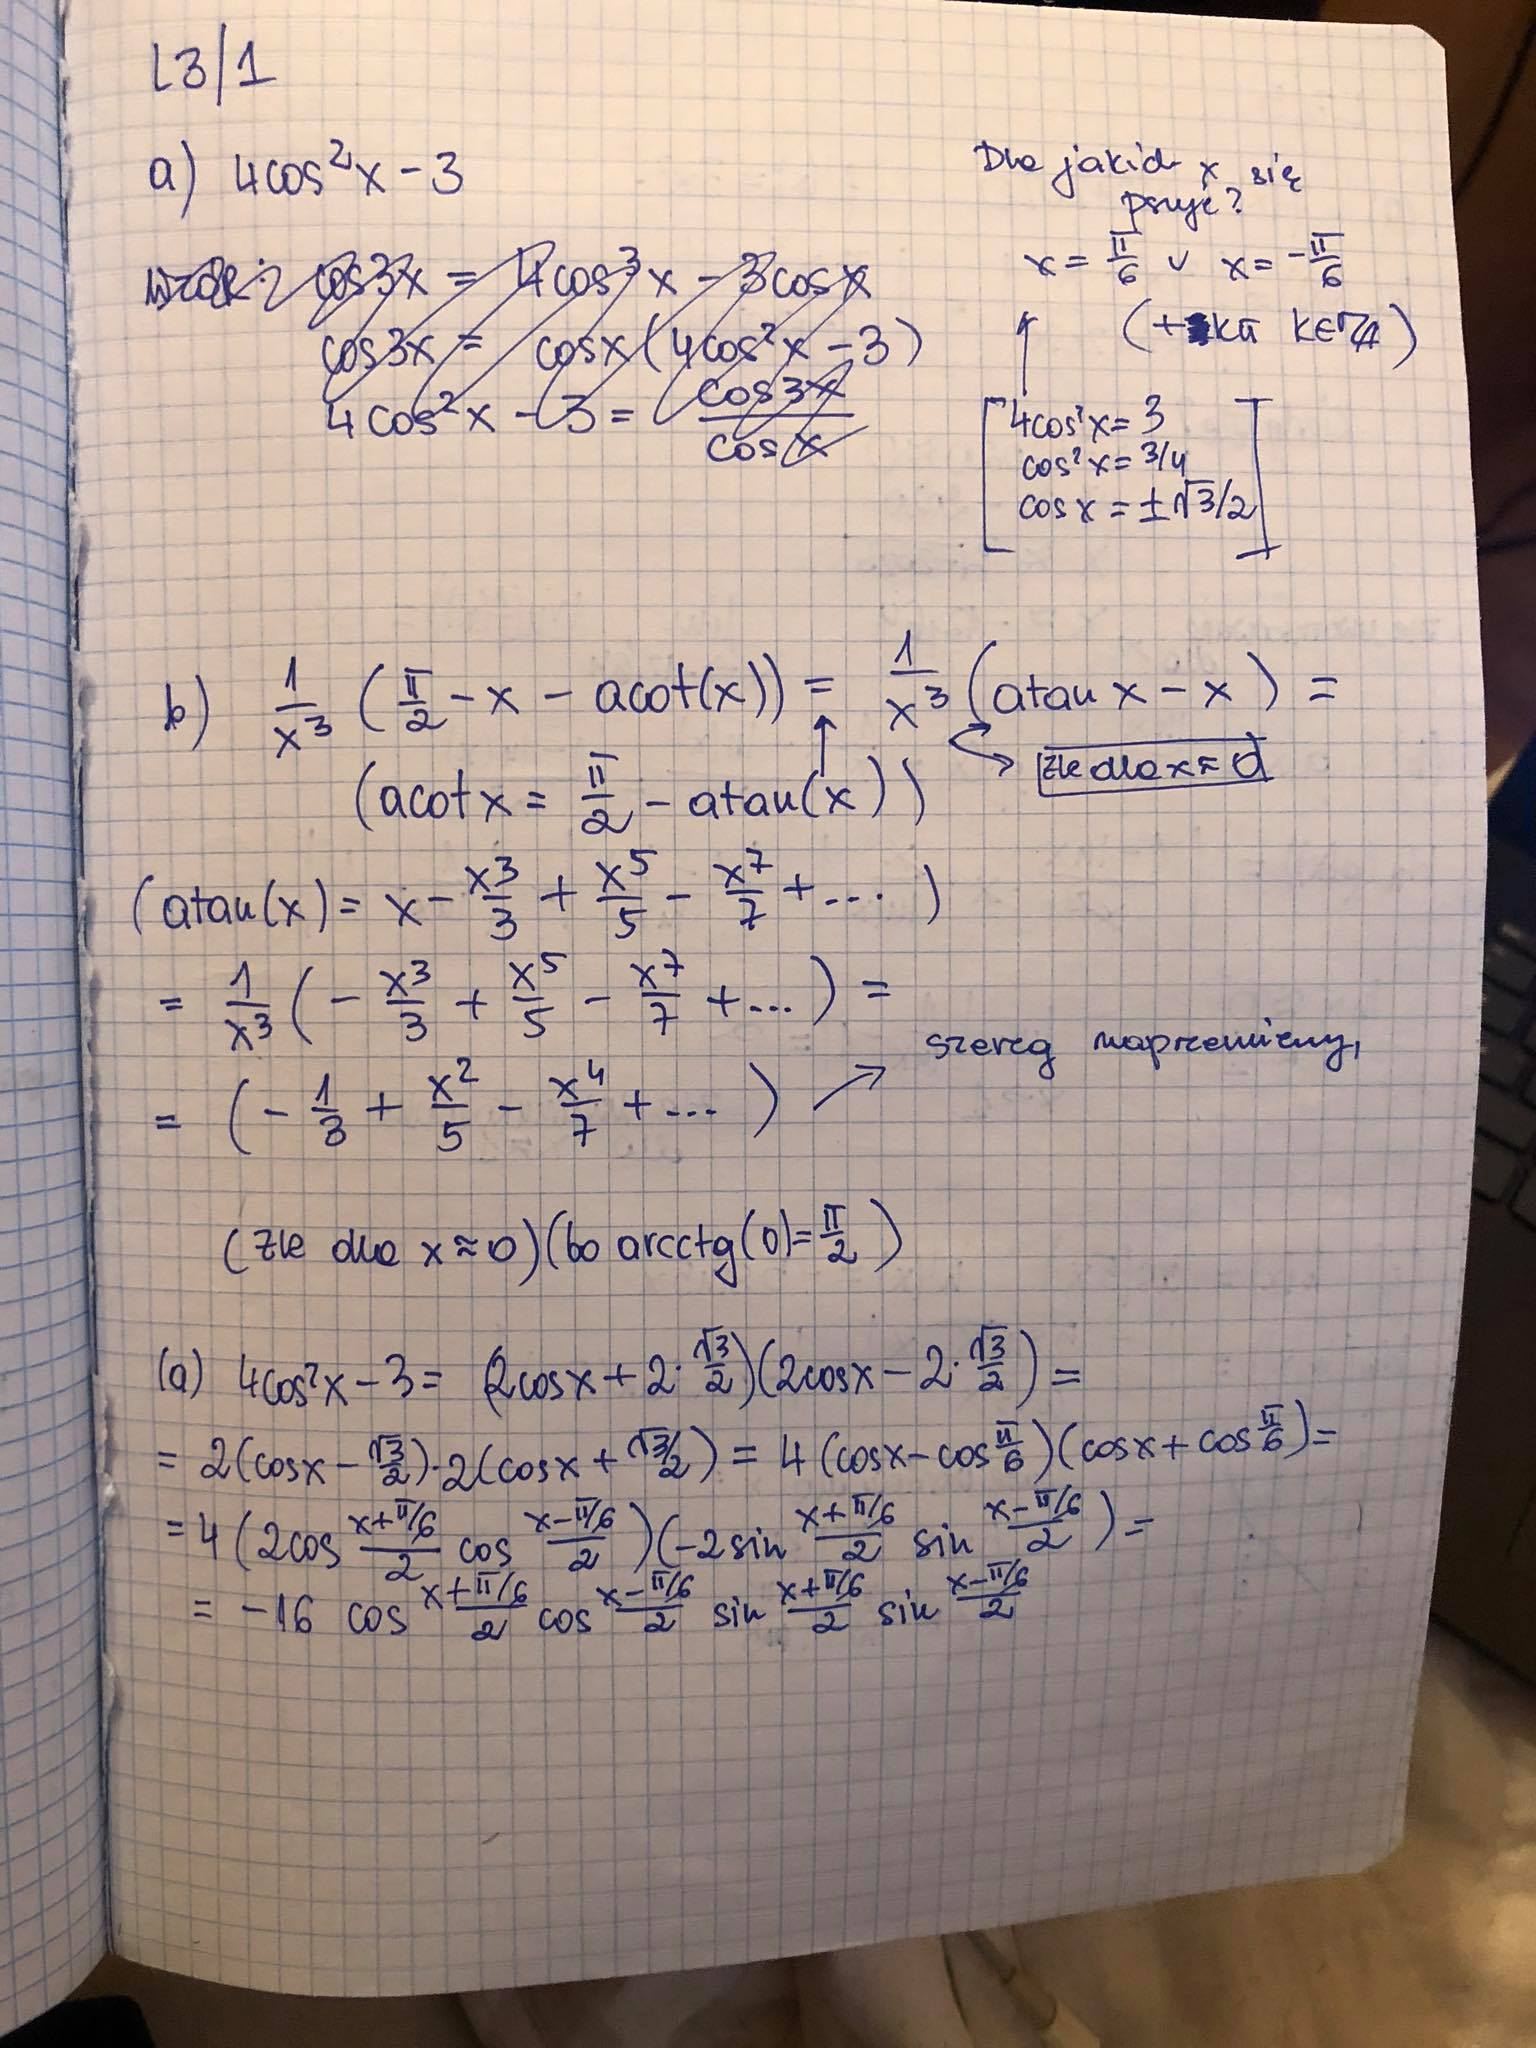 L3/1
a) 4cos²x - 3
Dla jakich x się
psuje?
x = π/6 ∨ x = -π/6
(+ kπ k∈ℤ)
4cos²x = 3
cos²x = 3/4
cos x = ±√3/2
wzór: cos3x = 4cos³x - 3cosx
cos3x = cosx(4cos²x - 3)
4cos²x - 3 = cos3x/cosx
b) 1/x³ (π/2 - x - acot(x)) = 1/x³ (atan x - x) =
źle dla x≈0
(acotx = π/2 - atan(x))
(atan(x) = x - x³/3 + x⁵/5 - x⁷/7 + ...)
= 1/x³ (- x³/3 + x⁵/5 - x⁷/7 + ...) =
= (- 1/3 + x²/5 - x⁴/7 + ...) → szereg naprzemienny,
(źle dla x≈0)(bo arcctg(0) = π/2)
(a) 4cos²x - 3 = (2cosx + 2·√3/2)(2cosx - 2·√3/2) =
= 2(cosx - √3/2)·2(cosx + √3/2) = 4(cosx - cos π/6)(cosx + cos π/6) =
= 4(2cos (x+π/6)/2 cos (x-π/6)/2)(-2sin (x+π/6)/2 sin (x-π/6)/2) =
= -16 cos (x+π/6)/2 cos (x-π/6)/2 sin (x+π/6)/2 sin (x-π/6)/2